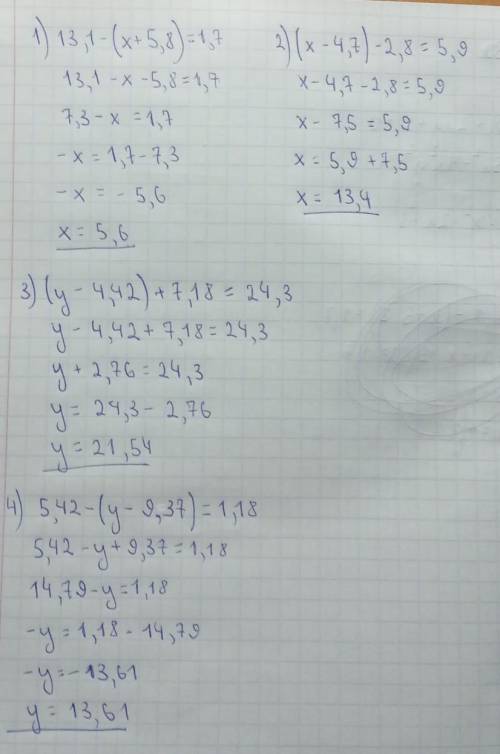 1) 13,1-(x+5,8)=1,7
13,1-x-5,8=1,7
7,3-x=1,7
-x=1,7-7,3
-x=-5,6
x=5,6
2) (x-4,7)-2,8=5,9
x-4,7-2,8=5,9
x-7,5=5,9
x=5,9+7,5
x=13,4
3) (y-4,42)+7,18=24,3
y-4,42+7,18=24,3
y+2,76=24,3
y=24,3-2,76
y=21,54
4) 5,42-(y-9,37)=1,18
5,42-y+9,37=1,18
14,79-y=1,18
-y=1,18-14,79
-y=-13,61
y=13,61